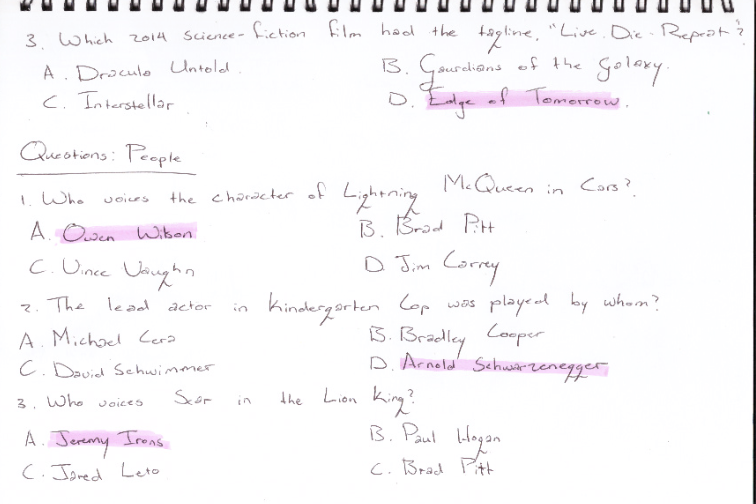 3. Which 2014 science-fiction film had the tagline, "Live. Die. Repeat"?
A. Dracula Untold. B. Gaurdians of the Galaxy.
C. Interstellar D. Edge of Tomorrow.
Questions: People
1. Who voices the character of Lightning McQueen in Cars?
A. Owen Wilson B. Brad Pitt
C. Vince Vaughn D. Jim Carrey
2. The lead actor in Kindergarten Cop was played by whom?
A. Michael Cera B. Bradley Cooper
C. David Schwimmer D. Arnold Schwarzenegger
3. Who voices Scar in the Lion King?
A. Jeremy Irons B. Paul Hogan
C. Jared Leto C. Brad Pitt